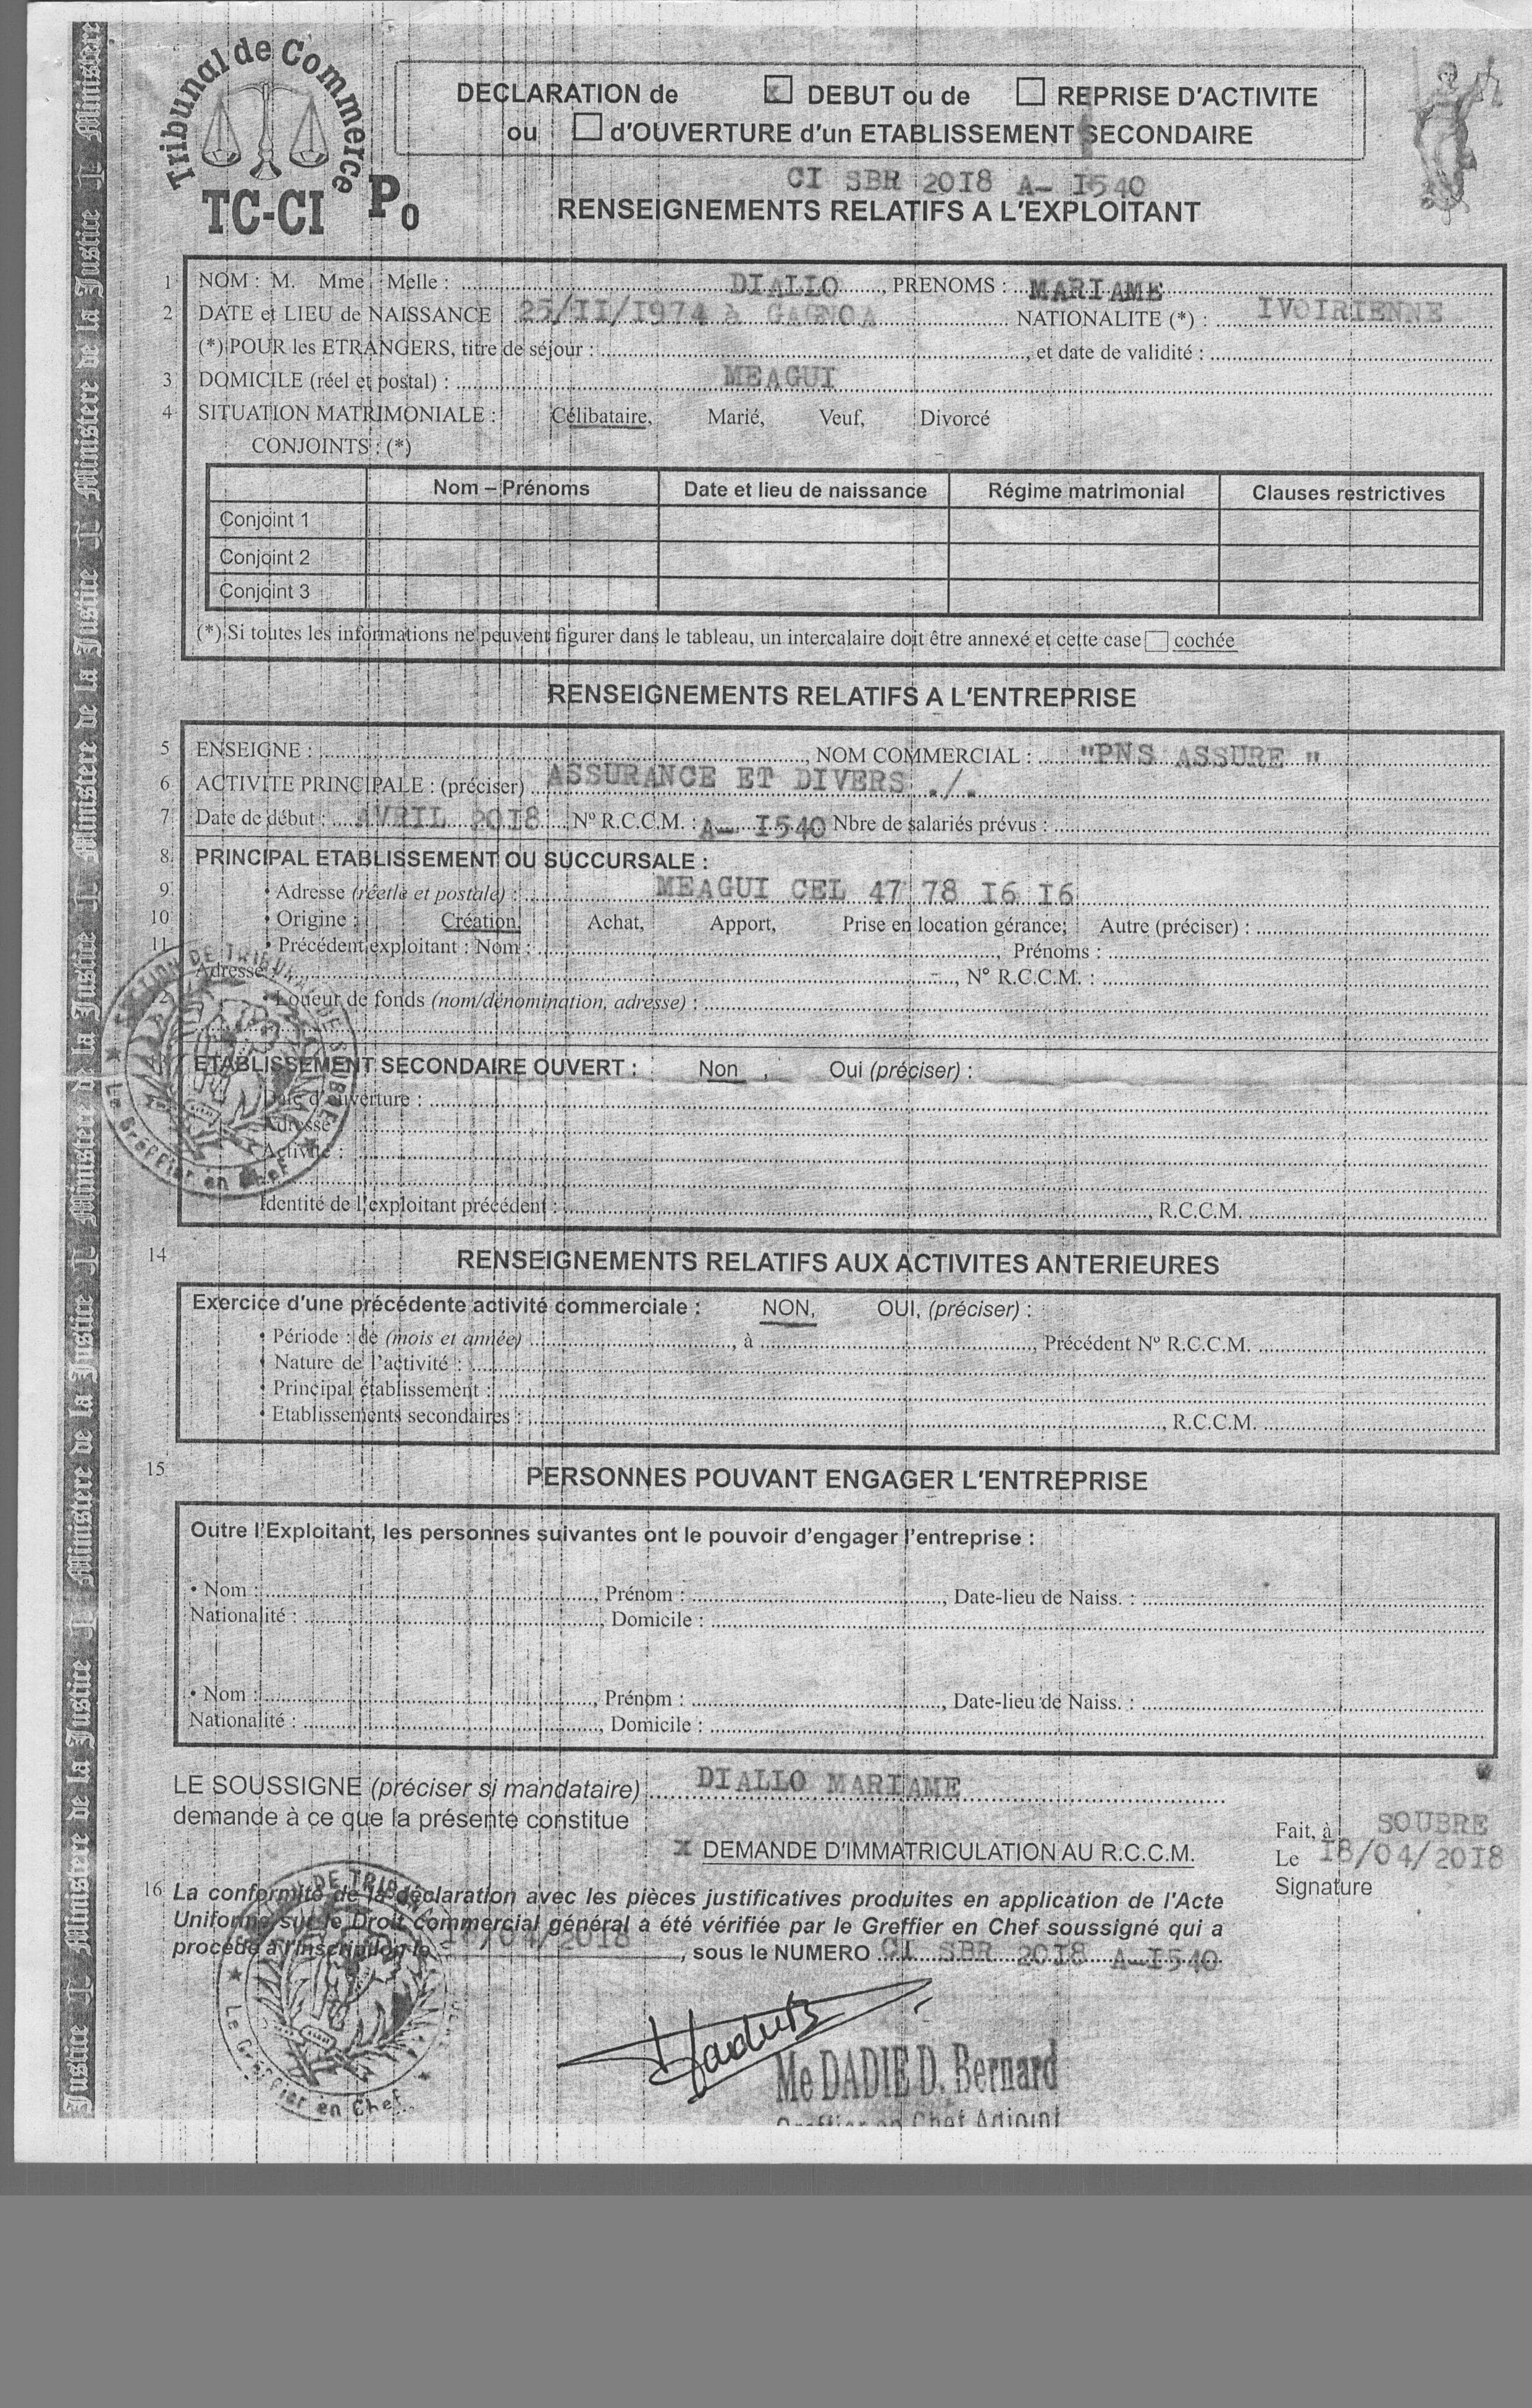 Tribunal de Commerce
TC-CI P0
DECLARATION de x DEBUT ou de REPRISE D'ACTIVITE
ou d'OUVERTURE d'un ETABLISSEMENT SECONDAIRE
CI SBR 20I8 A- I540
RENSEIGNEMENTS RELATIFS A L'EXPLOITANT
1 NOM : M. Mme Melle : DIALLO, PRENOMS : MARIAME
2 DATE et LIEU de NAISSANCE 25/II/I974 à GAGNOA NATIONALITE (*) : IVOIRIENNE
(*) POUR les ETRANGERS, titre de séjour : , et date de validité :
3 DOMICILE (réel et postal) : MEAGUI
4 SITUATION MATRIMONIALE : Célibataire, Marié, Veuf, Divorcé
CONJOINTS : (*)
Nom – Prénoms Date et lieu de naissance Régime matrimonial Clauses restrictives
Conjoint 1
Conjoint 2
Conjoint 3
(*) Si toutes les informations ne peuvent figurer dans le tableau, un intercalaire doit être annexé et cette case cochée
RENSEIGNEMENTS RELATIFS A L'ENTREPRISE
5 ENSEIGNE : , NOM COMMERCIAL : "PNS ASSURE "
6 ACTIVITE PRINCIPALE : (préciser) ASSURANCE ET DIVERS ./.
7 Date de début : AVRIL 20I8 N° R.C.C.M. : A- I540 Nbre de salariés prévus :
8 PRINCIPAL ETABLISSEMENT OU SUCCURSALE :
9 • Adresse (réelle et postale) : MEAGUI CEL 47 78 I6 I6
10 • Origine : Création, Achat, Apport, Prise en location gérance; Autre (préciser) :
11 • Précédent exploitant : Nom : , Prénoms :
Adresse : , N° R.C.C.M. :
• Loueur de fonds (nom/dénomination, adresse) :
ETABLISSEMENT SECONDAIRE OUVERT : Non , Oui (préciser) :
Date d'ouverture :
Adresse
Activité :
Identité de l'exploitant précédent : , R.C.C.M.
14 RENSEIGNEMENTS RELATIFS AUX ACTIVITES ANTERIEURES
Exercice d'une précédente activité commerciale : NON, OUI, (préciser) :
• Période : de (mois et année) , à , Précédent N° R.C.C.M.
• Nature de l'activité :
• Principal établissement :
• Etablissements secondaires : , R.C.C.M.
15 PERSONNES POUVANT ENGAGER L'ENTREPRISE
Outre l'Exploitant, les personnes suivantes ont le pouvoir d'engager l'entreprise :
• Nom : , Prénom : , Date-lieu de Naiss. :
Nationalité : , Domicile :
• Nom : , Prénom : , Date-lieu de Naiss. :
Nationalité : , Domicile :
LE SOUSSIGNE (préciser si mandataire) DIALLO MARIAME
demande à ce que la présente constitue
X DEMANDE D'IMMATRICULATION AU R.C.C.M.
Fait, à SOUBRE
Le I8/04/20I8
Signature
16 La conformité de la déclaration avec les pièces justificatives produites en application de l'Acte
Uniforme sur le Droit commercial général a été vérifiée par le Greffier en Chef soussigné qui a
procédé à l'inscription le I8/04/20I8, sous le NUMERO CI SBR 20I8 A-I540
Me DADIE D. Bernard
Greffier en Chef Adjoint
Le Greffier en Chef
Ministère de la Justice